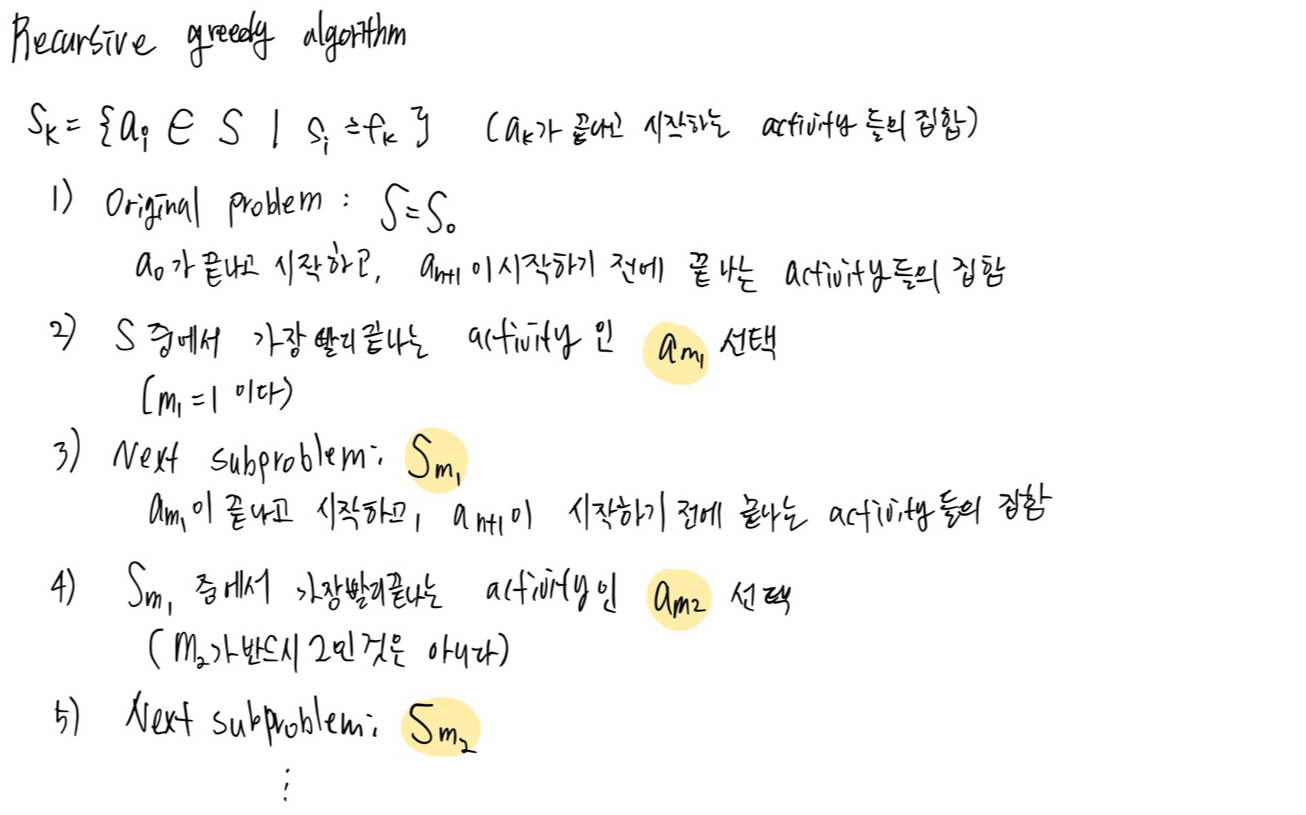 Recursive greedy algorithm
Sₖ = {aᵢ ∈ S | sᵢ ≥ fₖ} (aₖ가 끝나고 시작하는 activity 들의 집합)
1) Original problem : S=S₀
a₀가 끝나고 시작하고, aₙ₊₁이 시작하기 전에 끝나는 activity들의 집합
2) S 중에서 가장 빨리 끝나는 activity 인 aₘ₁ 선택
(m₁=1 이다)
3) Next subproblem: Sₘ₁
aₘ₁이 끝나고 시작하고, aₙ₊₁이 시작하기 전에 끝나는 activity들의 집합
4) Sₘ₁ 중에서 가장 빨리 끝나는 activity인 aₘ₂ 선택
(m₂가 반드시 2인 것은 아니다)
5) Next subproblem: Sₘ₂
⋮